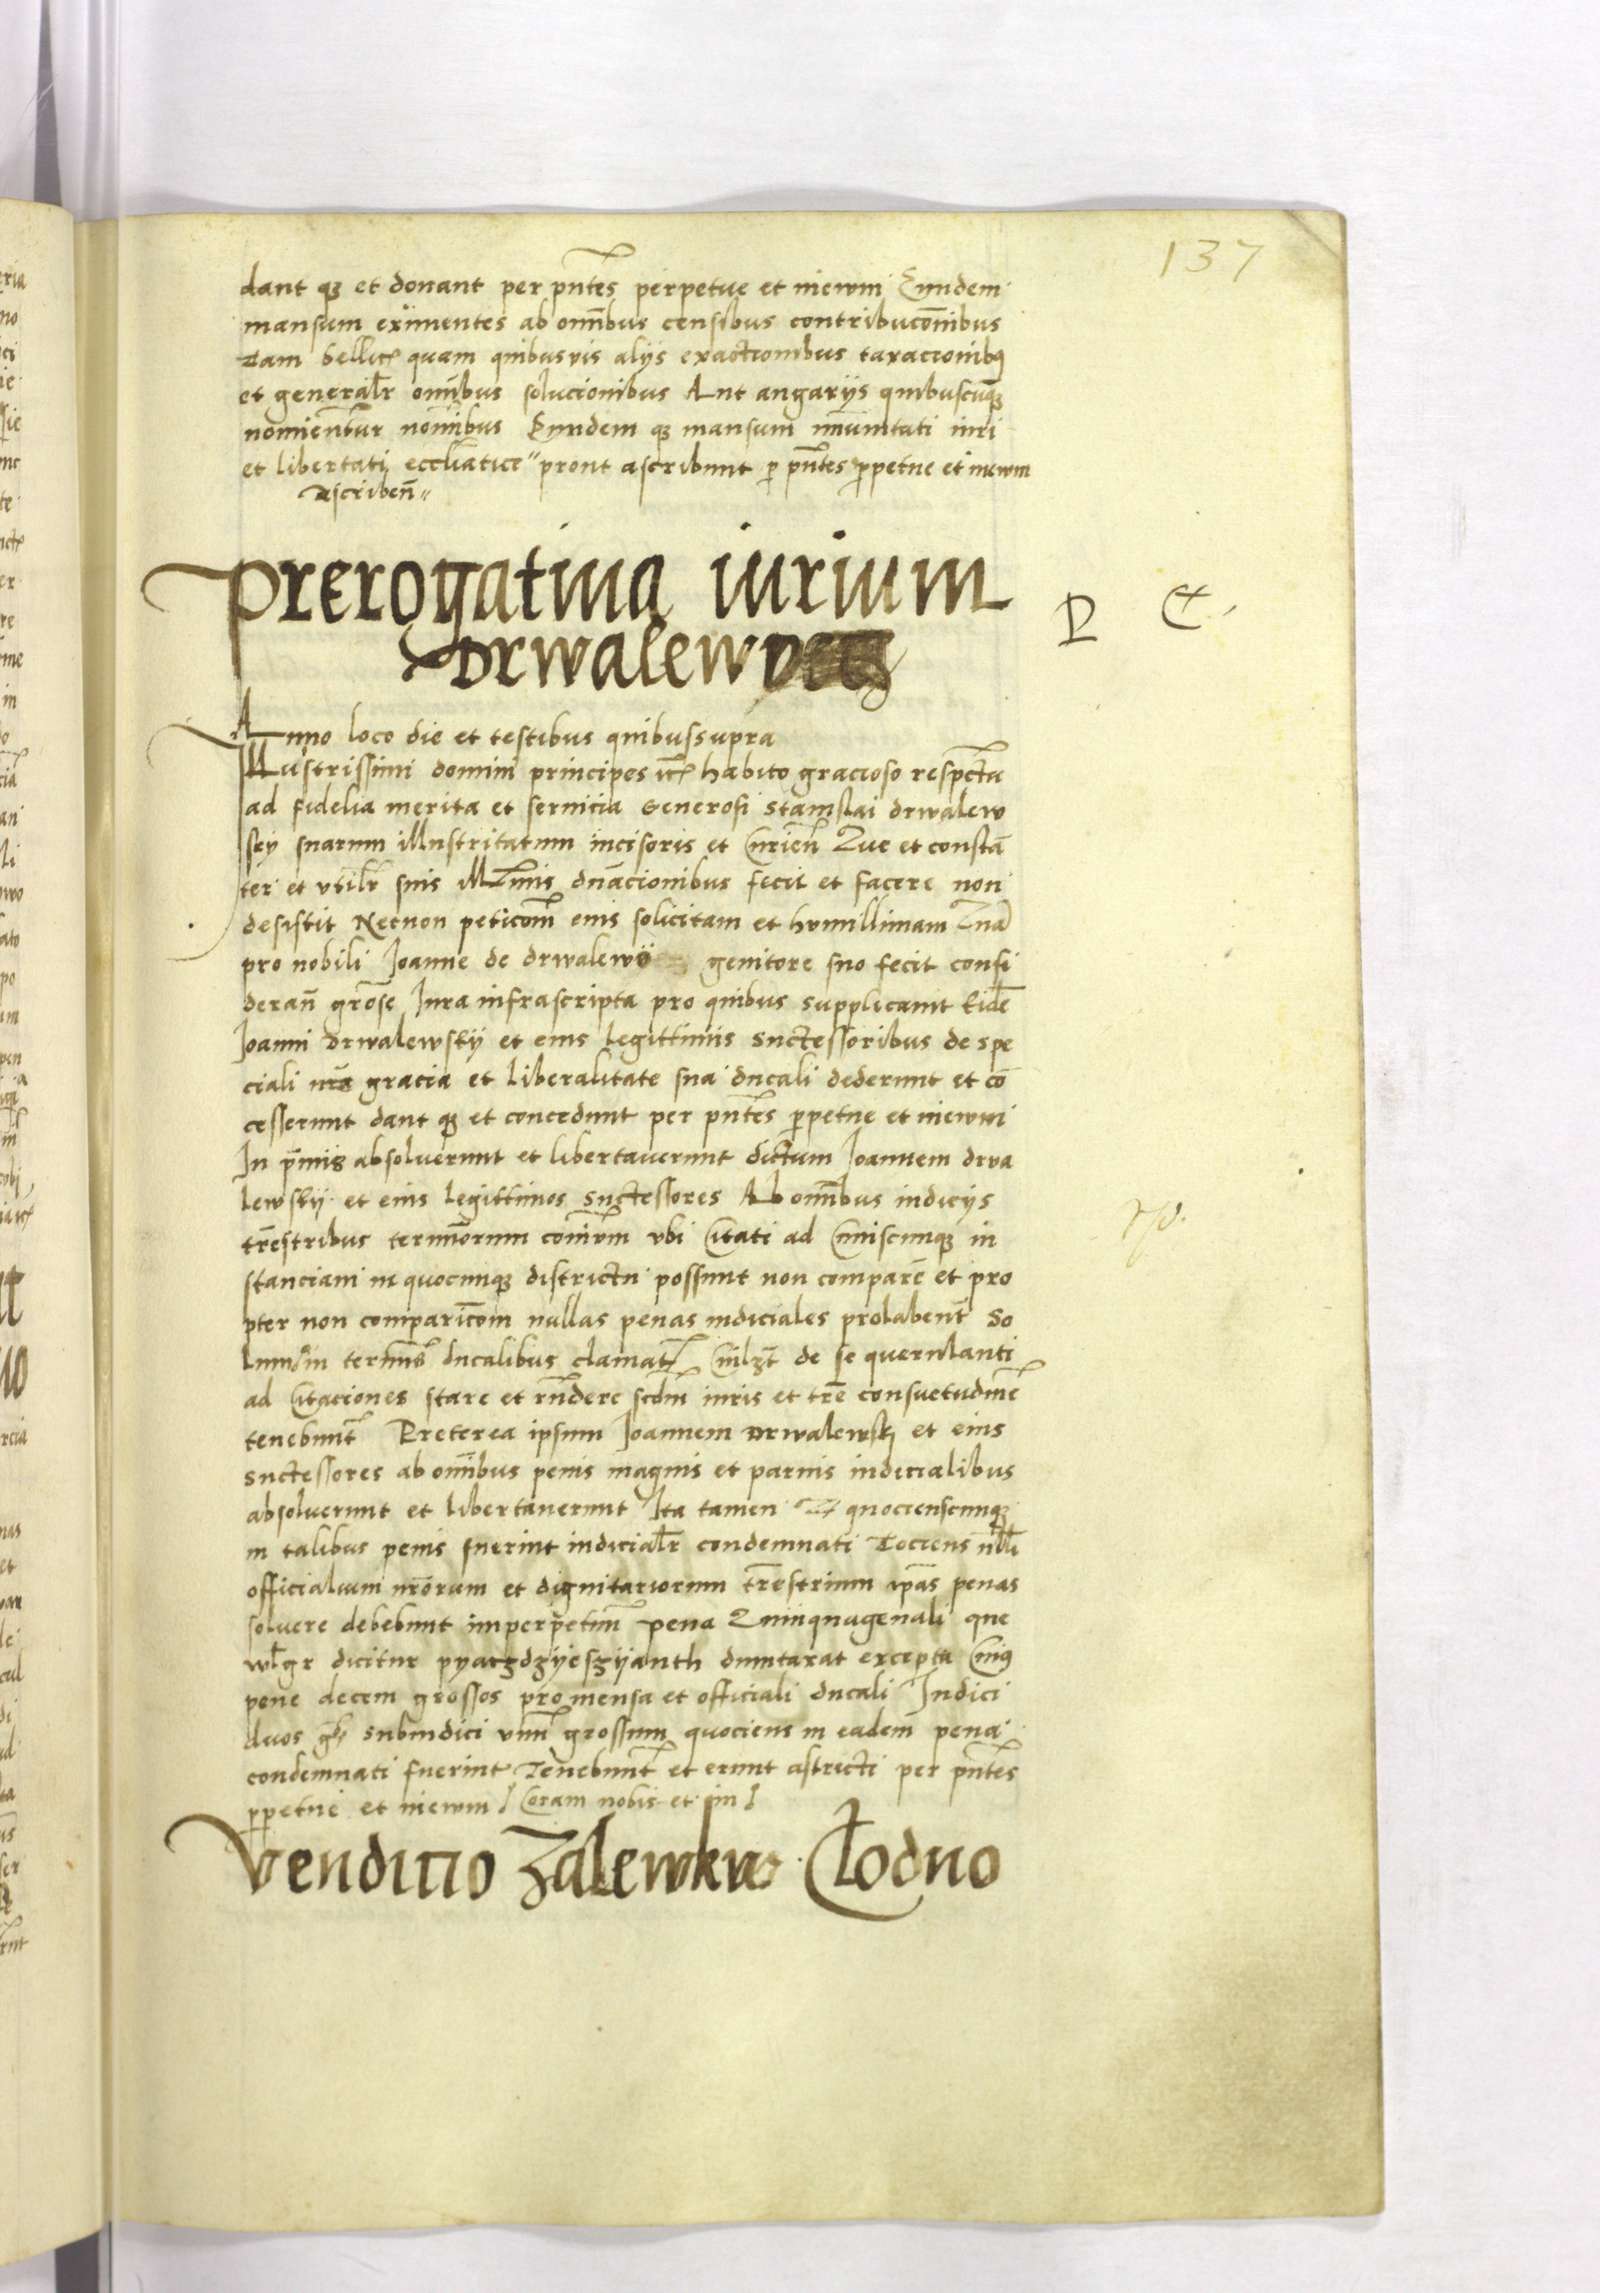 137
dant q3 et donant per pn̄tes perpetue et in ewm Eundem
mansum eximentes ab om̄ibus censibus contribucōnibus
Tam bellicꝭ quam quibusvis alijs exactionibus taxacionibꝰ
et generalr̄ om̄ibus solucionibus Aut angarijs quibuscūq3
nominentur nominibus Eundem q3 mansum im̄unitati iuri
et libertati eccl̄iastice prout ascribunt p pn̄tes perpetue et in ewm
Ascriben̄
Prerogativa iurium
Drwalewy
P C
Anno loco die et testibus quibussupra
Illustrissimi domini principes etcꝭ habito gracioso respectu
ad fidelia merita et servicia Generosi Stanislai drwalew
sky suarum illustritatum incisoris et Curien̄ Que et constā
ter et utilr̄ suis Illmis dn̄acionibus fecit et facere non
desistit Necnon peticom̄ eius solicitam et humillimam Quā
pro nobili Joanne de drwalewo genitore suo fecit consi
deran̄ gro̅se Jura infrascripta pro quibus supplicavit Eidē
Joanni drwalewskij et eius legittimis Suctessoribus de spe
ciali nr̄a gracia et liberalitate sua ducali dederunt et cō
cesserunt dant q3 et concedunt per pn̄tes perpetue et in ewm
In p̄mis absolverunt et libertaverunt dictum Joannem drva
lewskij et eius legittimos Suctessores Ab om̄ibus iudicijs
tr̄estribus terminorum com̄vm vbi Citati ad Cuiuscunq3 in
stanciam in quocunq3 districtu possunt non comparē et pro
pter non comparicōm nullas penas iudiciales prolabent̄ So
lum in termis ducalibus clamatꝭ Cuil3t de se querulanti
ad Citaciones stare et rn̄dere scdm̄ iuris et tr̄e consvetudinē
tenebunt̄ Preterea ipsum Joannem Drwalewskj et eius
suctessores ab om̄ibus penis magnis et parvis iudicialibus
absolverunt et libertaverunt Ita tamen quocienscunq3
in talibus penis fuerint iudicialr̄ condemnati Tociens
officialium nr̄orum et dignitariorum tr̄estrium ip̄as penas
solvere debebunt imperpetuū pena Quinquagenali que
wlgr dicitur pyaczdzyeszyanth dumtaxat excepta Cuiꝰ
pene decem grossos pro mensa et officiali ducali Judici
duos gr̄ Subiudici vnū grossum quociens in eadem pena
condemnati fuerint Tenebunt̄ et erunt astricti per pn̄tes
perpetue et in ewm Coram nobis et
Venditio Zalewkw Clodno